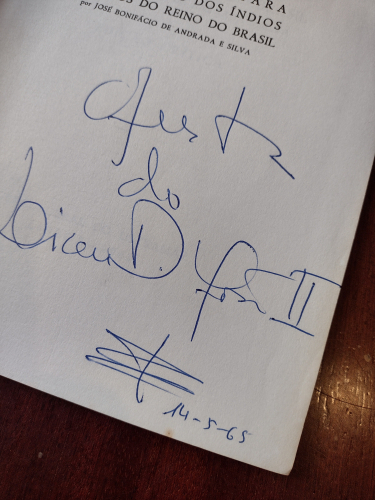 PARA
DOS ÍNDIOS
DO REINO DO BRASIL
por JOSÉ BONIFÁCIO DE ANDRADA E SILVA
Oferta
do
Liceu D. João II
14-5-65